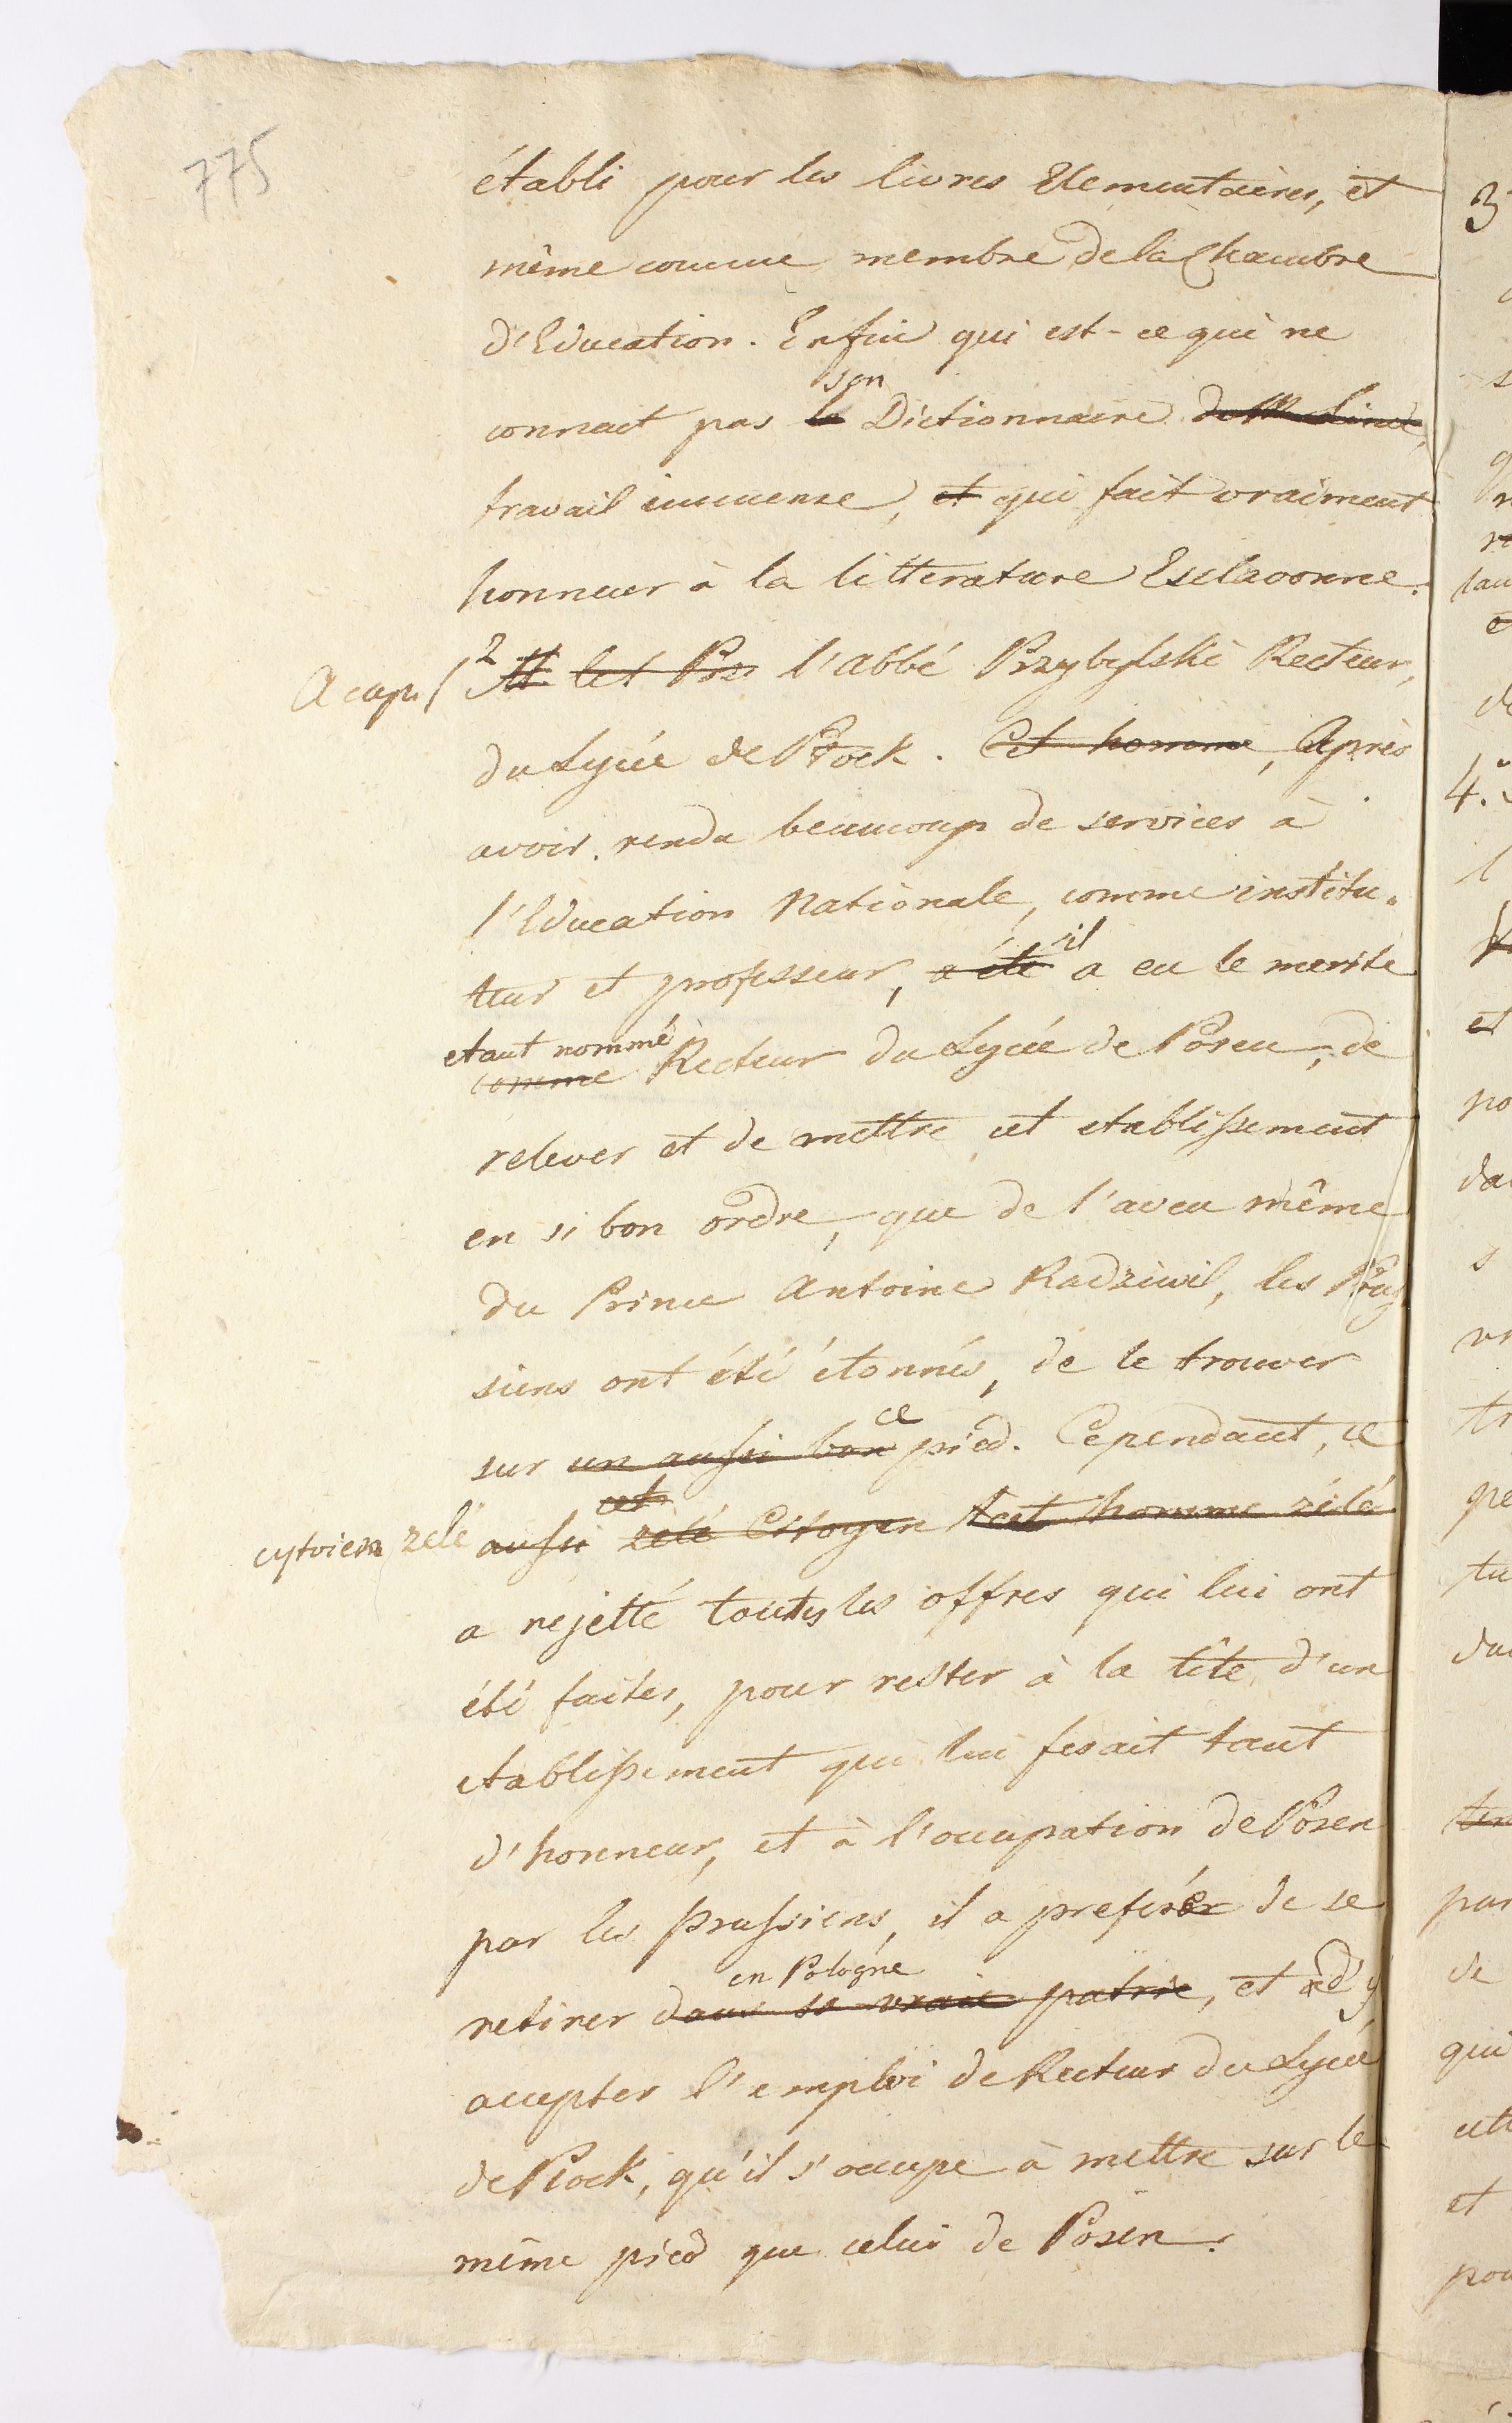 775
établi pour les livres Elementaires, et
même comme membre de la Chambre
d'Education. Enfin qui est-ce qui ne
son
connait pas le Dictionnaire de M Linde,
travail immense, et qui fait vraiment
honneur à la litterature Esclavonne.
A capi 2 M. let Prz l'abbé Przybylski Recteur,
du Lycée de Plock. Cet homme, Après
avoir rendu beaucoup de services à
l'Education Nationale, comme institu-
teur et professeur, a été il a eu le merite
etant nommé
comme Recteur du Lycée de Posen, de
relever et de mettre cet etablissement
en si bon ordre, que de l'aveu même
du Prince Antoine Radziwil, les Prus
siens ont été étonnés, de le trouver
ce
sur un aussi bon pied. Cependant, ce
cet
cytoien zelé aussi zelé Citoyen cet homme zélé
a rejetté toutes les offres qui lui ont
été faites, pour rester à la tête d'un
etablissement qui lui fesait tant
d'honneur, et à l'occupation de Posen
par les Prussiens, il a preferé de se
en Pologne
retirer dans sa vraie patrie, et d'y
accepter l'emploi de Recteur du Lycée
de Plock, qu'il s'occupe à mettre sur le
même pied que celui de Posen.
3
4.
lau
et
po
dan
s
tr
pe
tu
par
de
qui
et
pou